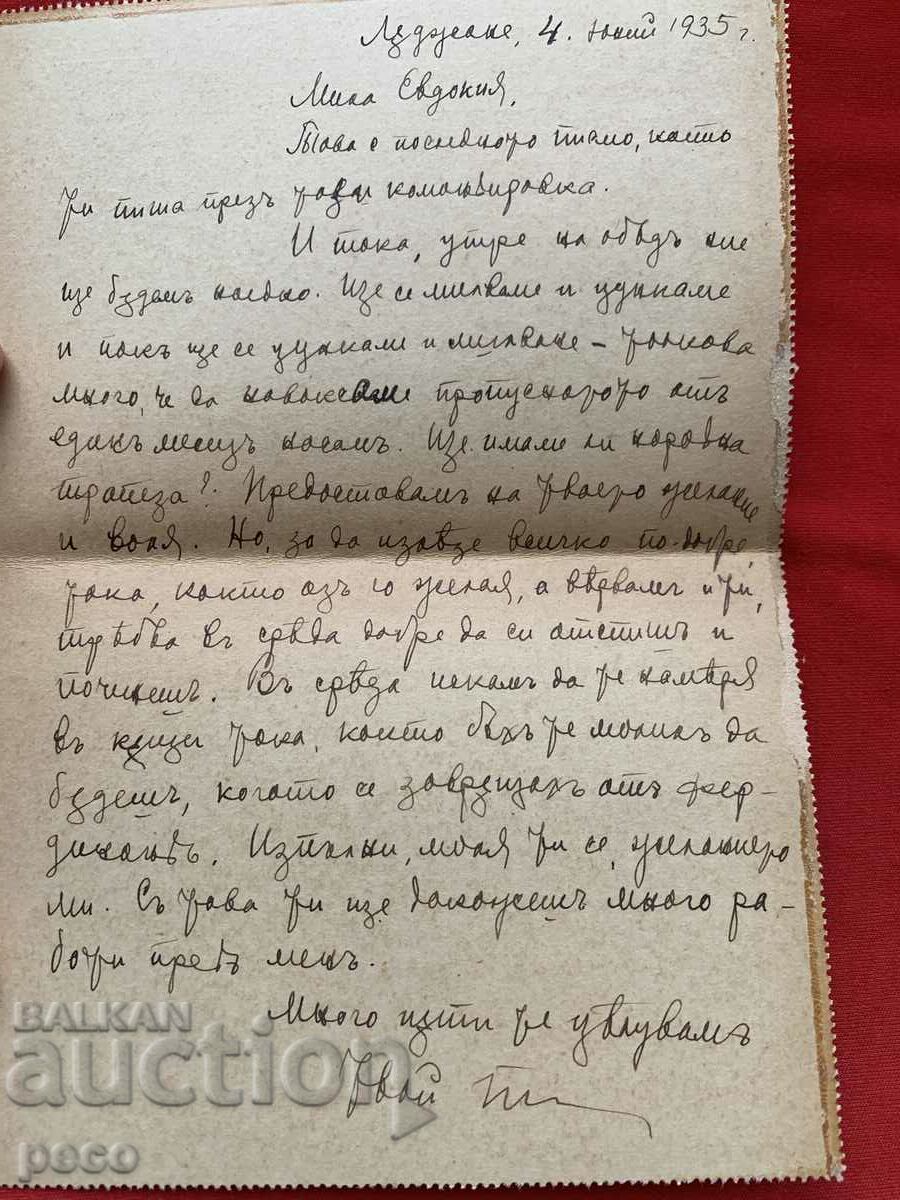 Лъджене, 4. юний 1935 г.
Мила Евдокия,
Това е последното писмо, което
ти пиша презъ тази командировка.
И така, утре на обѣдъ ние
ще бѫдемъ наедно. Ще се милваме и цункаме
и пакъ ще се цункали и милване – толкова
много, че да наваксаме пропуснатото отъ
единъ месецъ насамъ. Ще имали ли народна
трапеза? Предоставамъ на твоето желание
и воля. Но, за да излѣзе всичко по-добре,
така, както азъ го желая, а вѣрвамъ и ти,
трѣбва въ срѣда добре да си отспишъ и
починешъ. Въ срѣда искамъ да те намѣря
въ кѫщи така, както бѣхъ те молилъ да
бѫдешъ, когато се завръщахъ отъ Фер-
динандъ. Изпълни, моля ти се, желанието
ми. Съ това ти ще докажешъ много ра-
боти предъ менъ.
Много пѫти те цѣлувамъ
Твой
BALKAN
auction
peco